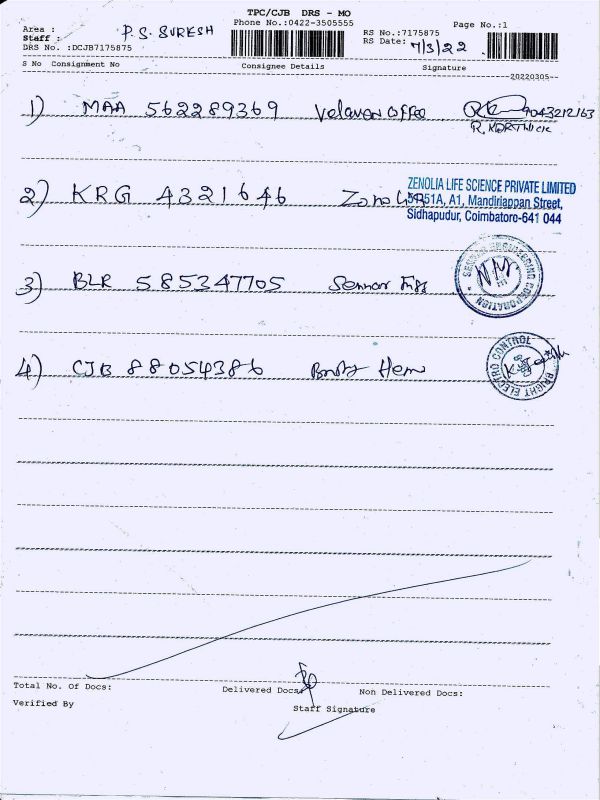 TPC/CJB DRS - MO
Phone No.:0422-3505555
Page No.:1
Area :
Staff : P.S. SURESH
RS No.:7175875
RS Date: 7/3/22
DRS No. :DCJB7175875
S No Consignment No Consignee Details Signature
20220305
1) MAA 562289369 Velavan Office 9043212163
R. KARTHICK
2) KRG 4321646 Zeno
ZENOLIA LIFE SCIENCE PRIVATE LIMITED
A1, Mandiriappan Street,
Sidhapudur, Coimbatore-641 044
3) BLR 585347705 Sennar Engg
SENNAR ENGINEERING CORPORATION
4) CJB 88054386
BRIGHT ELECTRO CONTROL
Total No. Of Docs: Delivered Docs: Non Delivered Docs:
Verified By Staff Signature